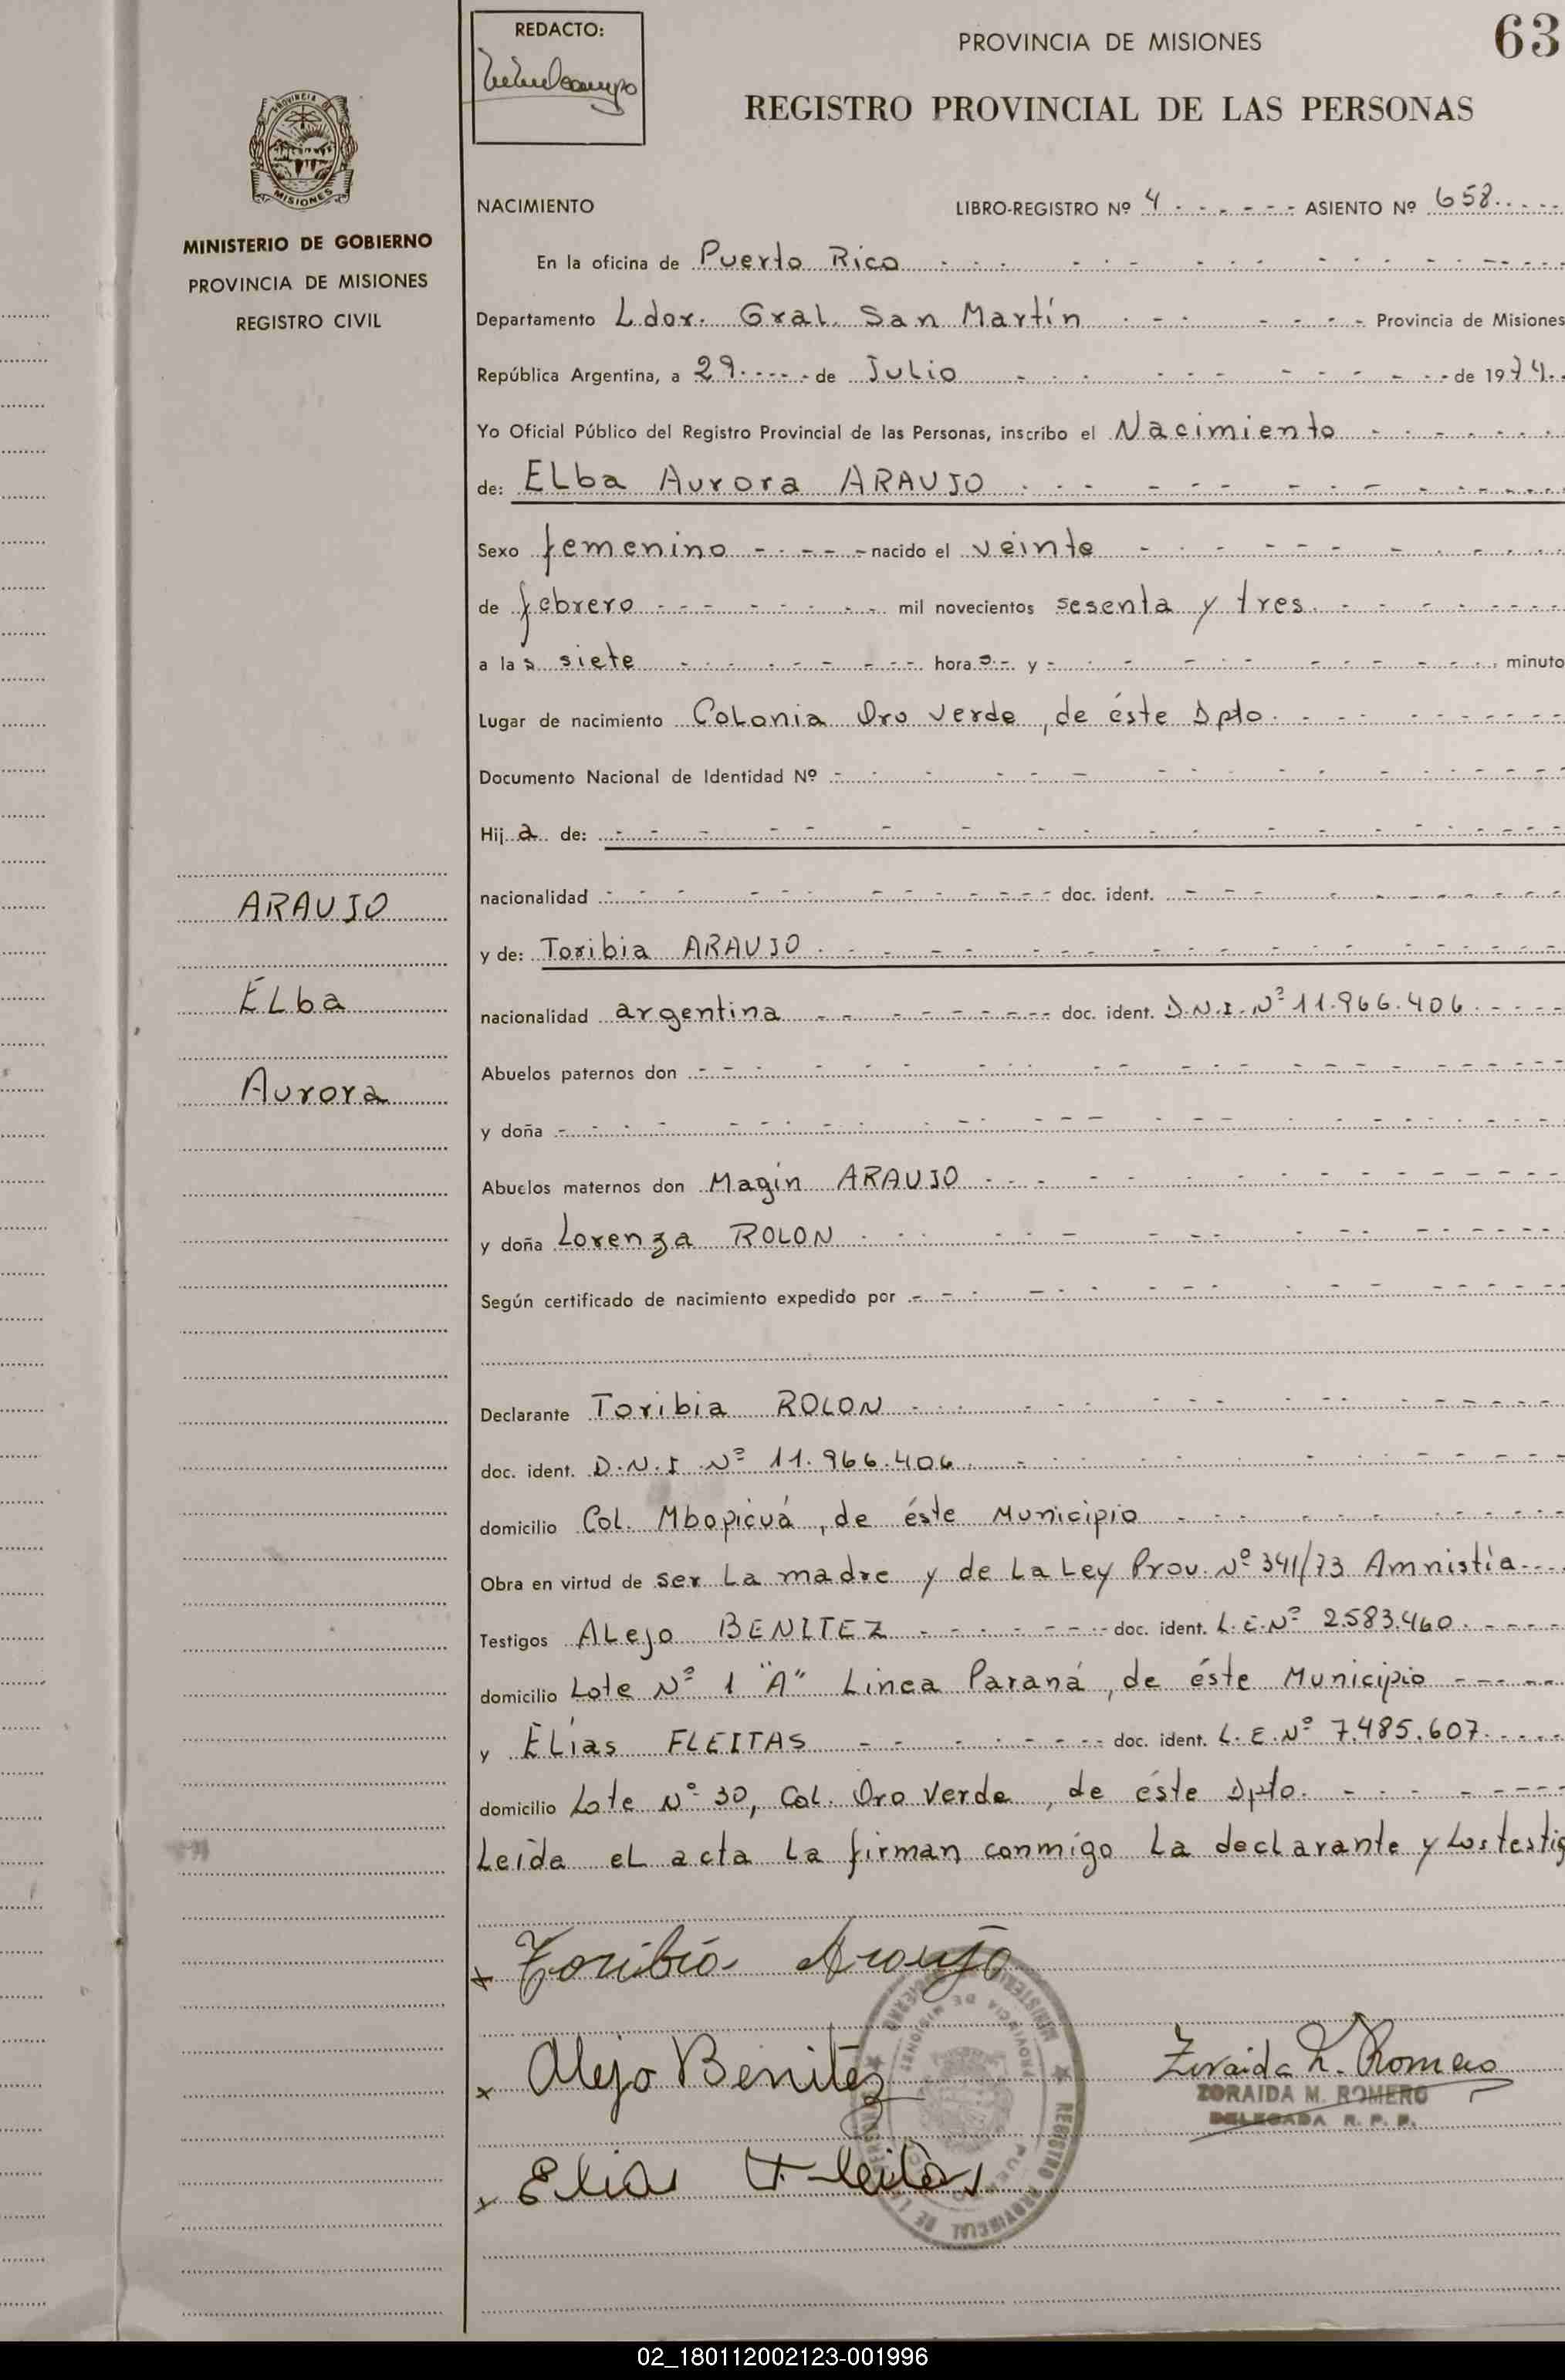 REDACTO:
PROVINCIA DE MISIONES
63
REGISTRO PROVINCIAL DE LAS PERSONAS
PROVINCIA DE MISIONES
MINISTERIO DE GOBIERNO
PROVINCIA DE MISIONES
REGISTRO CIVIL
NACIMIENTO LIBRO-REGISTRO Nº 4 ASIENTO Nº 658
En la oficina de Puerto Rico
Departamento Ldor. Gral. San Martín Provincia de Misiones
República Argentina, a 29 de Julio de 1974
Yo Oficial Público del Registro Provincial de las Personas, inscribo el Nacimiento
de: ELba Aurora ARAUJO
Sexo femenino nacido el veinte
de febrero mil novecientos sesenta y tres
a las siete horas y minuto
Lugar de nacimiento Colonia Oro Verde, de éste Dpto.
Documento Nacional de Identidad Nº
Hija de:
nacionalidad doc. ident.
y de: Toribia ARAUJO
nacionalidad argentina doc. ident. D.N.I. Nº 11.966.406
Abuelos paternos don
y doña
Abuelos maternos don Magin ARAUJO
y doña Lorenza ROLON
Según certificado de nacimiento expedido por
Declarante Toribia ROLON
doc. ident. D.N.I Nº 11.966.406
domicilio Col. Mbopicuá, de éste Municipio
Obra en virtud de ser La madre y de La Ley Prov. Nº 341/73 Amnistía
Testigos ALejo BENITEZ doc. ident. L.E.Nº 2.583.460
domicilio Lote Nº 1 "A" Linea Paraná, de éste Municipio
y ELías FLEITAS doc. ident. L.E.Nº 7.485.607
domicilio Lote Nº 30, Col. Oro Verde, de éste Dpto.
Leída eL acta La firman conmigo La declarante y Los testig
ARAUJO
ELba
Aurora
x Toribia Araujo
x Alejo Benitez
x Elias Fleitas
Zoraida M. Romero
ZORAIDA M. ROMERO
DELEGADA R. P. P.
MINISTERIO DE GOBIERNO
REGISTRO PROVINCIAL DE LAS PERSONAS
PROVINCIA DE MISIONES
PUERTO RICO
02_180112002123-001996